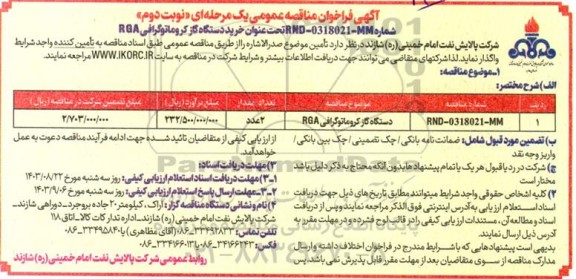 آگهی فراخوان مناقصه عمومی یک مرحله‌ای «نوبت دوم»
شماره RND-0318021-MM تحت عنوان خرید دستگاه گاز کروماتوگرافی RGA
شرکت پالایش نفت امام خمینی (ره) شازند در نظر دارد تأمین موضوع صدرالاشاره را از طریق مناقصه عمومی طبق اسناد مناقصه به تأمین کننده واجد شرایط
واگذار نماید. لذا شرکتهای متقاضی می‌توانند جهت دریافت اطلاعات بیشتر و شرایط شرکت در مناقصه به سایت WWW.IKORC.IR مراجعه نمایند.
۱-موضوع مناقصه:
الف) شرح مختصر:
ردیف شماره مناقصه موضوع مناقصه تعداد/مقدار مبلغ برآورد (ریال) مبلغ تضمین شرکت در مناقصه (ریال)
۱ RND-0318021-MM دستگاه گاز کروماتوگرافی RGA ۲عدد ۲۳۲/۵۰۰/۰۰۰/۰۰۰ ۲/۷۰۳/۰۰۰/۰۰۰
ب) تضمین مورد قبول شامل: ضمانت نامه بانکی / چک تضمینی / چک بین بانکی /
واریز وجه نقد
ج) شرکت در رد یا قبول هر یک یا تمام پیشنهادها بدون آنکه محتاج به ذکر دلیل باشد
مختار است
۲) کلیه اشخاص حقوقی واجد شرایط میتوانند مطابق تاریخ های ذیل جهت دریافت
اسناد استعلام ارزیابی به آدرس اینترنتی فوق الذکر مراجعه نمایند و پس از دریافت
اسناد و مطالعه آن، مستندات ارزیابی کیفی را در قالب لوح فشرده و در مهلت مقرر به
آدرس ذیل ارسال نمایند.
بدیهی است پیشنهادهایی که با شرایط مندرج در فراخوان اختلاف داشته و ارسال
مدارک مناقصه از سوی متقاضیان بعد از مهلت مقرر قابل پذیرش نمی باشد. پس
از ارزیابی کیفی از متقاضیان تائید شده جهت ادامه فرآیند مناقصه دعوت به عمل
خواهد آمد.
۳) مهلت دریافت اسناد:
۳-۱) مهلت دریافت اسناد استعلام ارزیابی کیفی: روز سه شنبه مورخ ۱۴۰۳/۰۸/۲۲
۳-۲) مهلت ارسال پاسخ استعلام ارزیابی کیفی: روز سه شنبه مورخ ۱۴۰۳/۹/۰۶
۴) نام و نشانی دستگاه مناقصه گزار: اراک، کیلومتر ۲۰ جاده بروجرد، دوراهی شازند،
شرکت پالایش نفت امام خمینی (ره) شازند، اداره تدارکات کالا، اتاق ۱۱۸
تلفن تماس: ۳۳۴۹۲۸۳۳-۰۸۶ (آقای مظاهری) یا ۳۳۴۹۵۸۴-۰۸۶
فکس: ۳۴۱۶۶۲۴۳-۰۸۶ یا ۳۳۴۱۶۶۰۱۳-۰۸۶
روابط عمومی شرکت پالایش نفت امام خمینی (ره) شازند